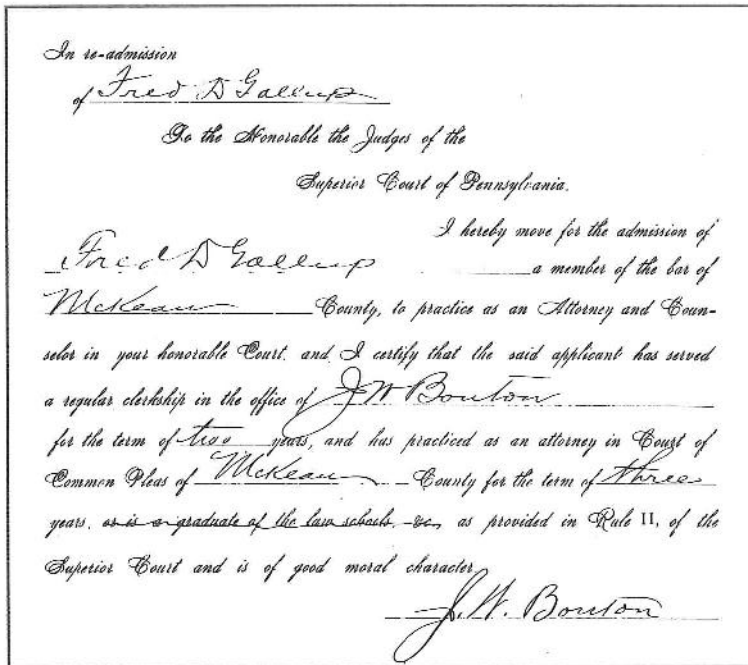 In re-admission
of Fred D Gallup
To the Honorable the Judges of the
Superior Court of Pennsylvania.
I hereby move for the admission of
Fred D Gallup a member of the bar of
McKean County, to practice as an Attorney and Coun-
selor in your honorable Court. and I certify that the said applicant has served
a regular clerkship in the office of J W Bouton
for the term of two years, and has practiced as an attorney in Court of
Common Pleas of McKean County for the term of three
years, or is a graduate of the law schools, &c, as provided in Rule II, of the
Superior Court and is of good moral character
J. W. Bouton